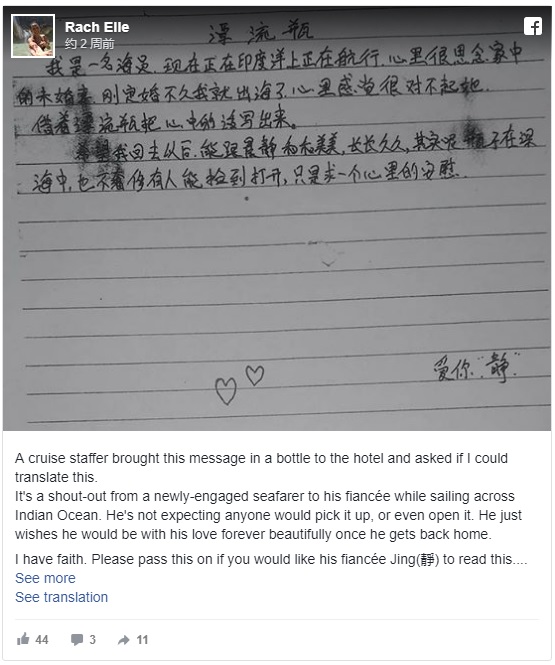 Rach Elle
约 2 周前
漂流瓶
我是一名海员，现在正在印度洋上正在航行，心里很思念家中
的未婚妻，刚定婚不久我就出海了心里感觉很对不起她。
借着漂流瓶把心中的话写出来。
希望我回去以后，能跟静和和美美，长长久久，其实
不在深
海中，也不有人能捡到打开，只是求一个心里的安慰。
爱你“静”
A cruise staffer brought this message in a bottle to the hotel and asked if I could
translate this.
It's a shout-out from a newly-engaged seafarer to his fiancée while sailing across
Indian Ocean. He's not expecting anyone would pick it up, or even open it. He just
wishes he would be with his love forever beautifully once he gets back home.
I have faith. Please pass this on if you would like his fiancée Jing(靜) to read this....
See more
See translation
44
3
11